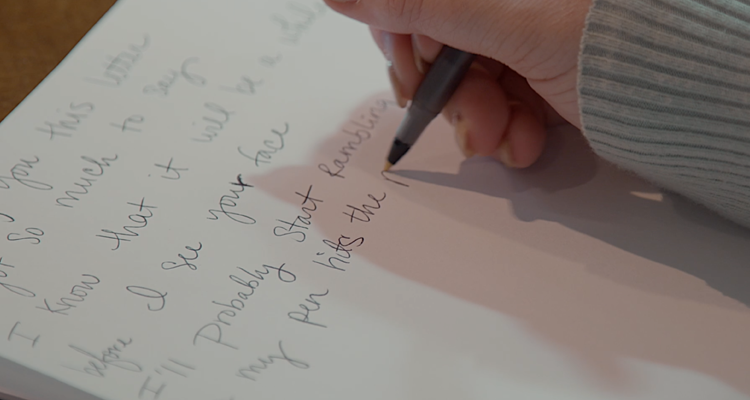 you this letter
got so much to say
I know that it will be a while
before I see your face
I'll Probably Start Rambling
my pen hits the